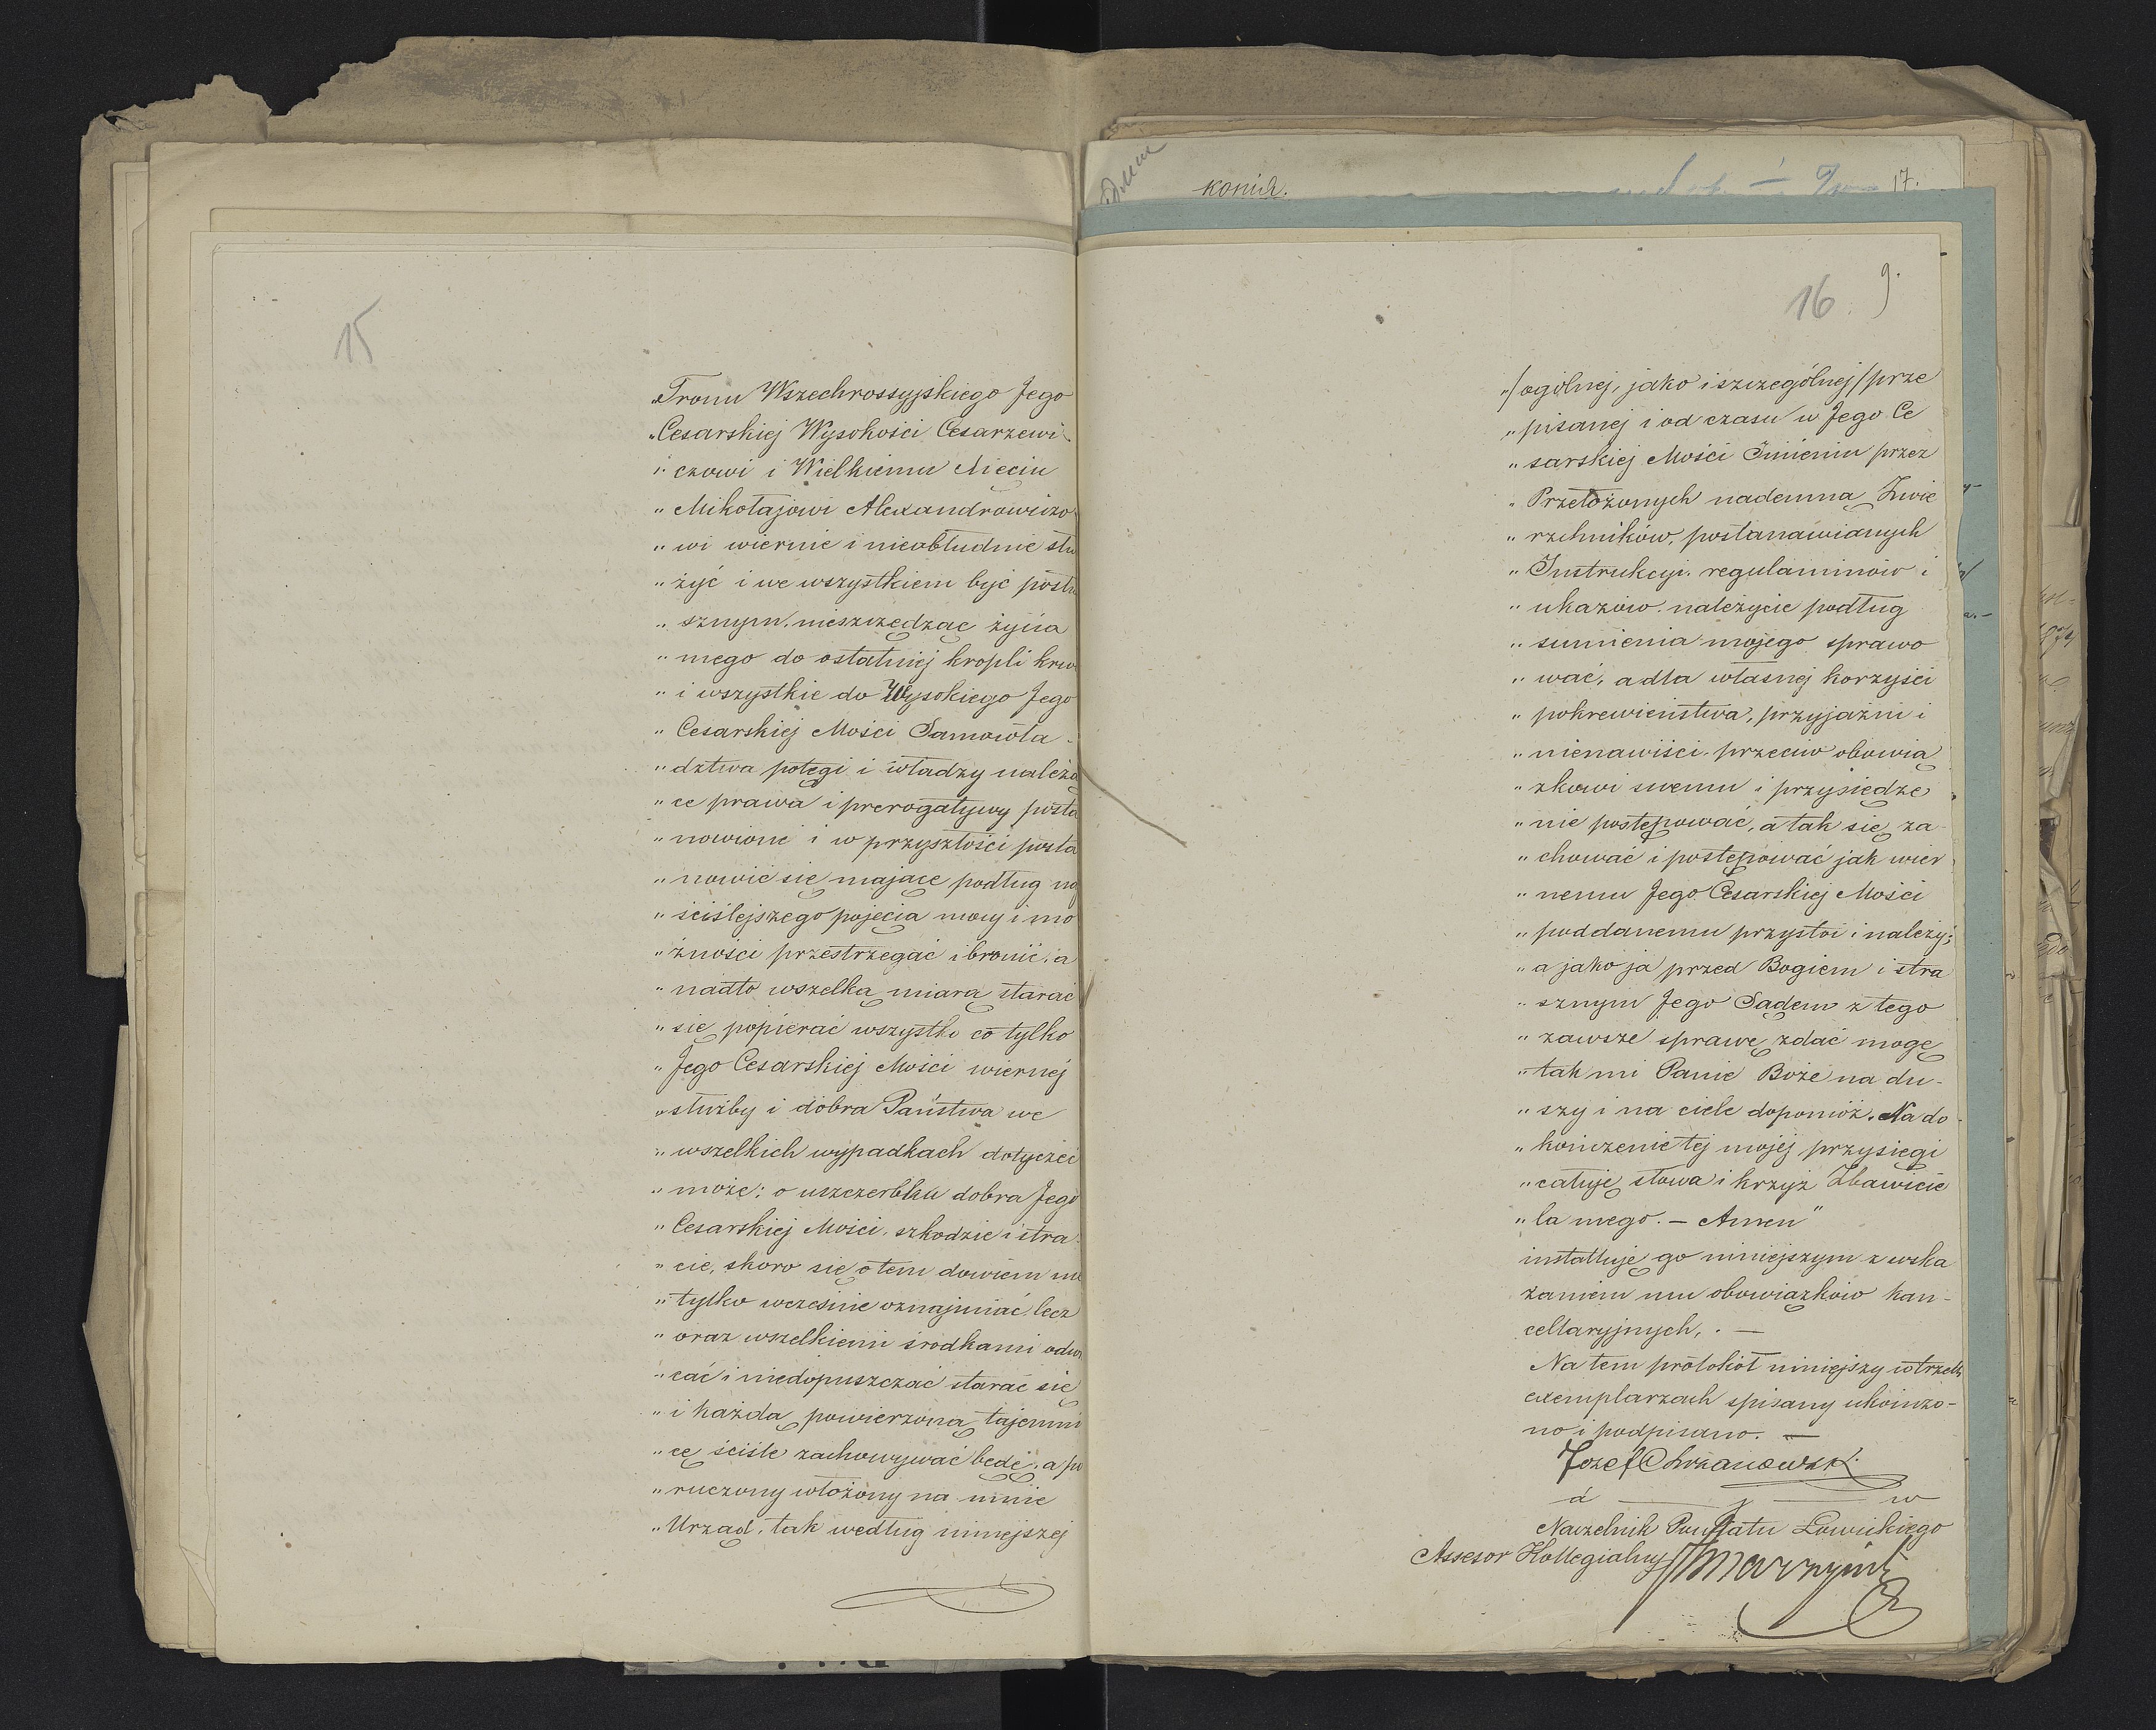 15
„Tronu Wszechrossyjskiego Jego
„Cesarskiej Wysokości Cesarzewi-
„czowi i Wielkiemu Xięciu
„Mikołajowi Alexandrowiczo
„wi wiernie i nieobłudnie słu
„żyć i we wszystkiem być posłu
„sznym, nieszczędząc życia
„mego do ostatniej kropli krw
„i wszystkie do Wysokiego Jego
„Cesarskiej Mości Samowła-
„dztwa potęgi i władzy należą
„ce prawa i prerogatywy posta
„nowione i w przyszłości posta
„nowić się mające podług naj
„ściślejszego pojęcia mocy i mo
„żności przestrzegać i bronić, a
„nadto wszelką miarą starać
„się popierać wszystko co tylko
„Jego Cesarskiej Mości wiernej
„służby i dobra Państwa we
„wszelkich wypadkach dotyczeć
„może; o uszczerbku dobra Jego
„Cesarskiej Mości, szkodzie i stra
„cie, skoro się o tem dowiem nie
„tylko wcześnie oznajmiać lecz
„oraz wszelkiemi środkami odwr
„cać i niedopuszczać starać się
„i każdą powierzoną tajemni
„cę ściśle zachowywać będę, a po
„ruczony włożony na mnie
„Urząd, tak według niniejszej
копія.
17.
16. 9.
„/ogólnej, jako i szczególnej/ prze
„pisanej i od czasu w Jego Ce
„sarskiej Mości Imieniu przez
„Przełożonych nademną Zwie
„rzchników, postanawianych
„Instrukcji, regulaminów i
„ukazów, należycie podług
„sumienia mojego sprawo
„wać, a dla własnej korzyści
„pokrewieństwa, przyjaźni i
„nienawiści, przeciw obowią
„zkowi swemu i przysiędze
„nie postępować, a tak się za
„chować i postępować jak wier
„nemu Jego Cesarskiej Mości
„poddanemu przystoi i należy;
„a jako ja przed Bogiem i stra
„sznym Jego Sądem z tego
„zawsze sprawę zdać mogę
„tak mi Panie Boże na du-
„szy i na ciele dopomóż. Na do-
„kończenie tej mojej przysięgi
„całuję słowa i krzyż Zbawicie
„la mego. – Amen"
installuję go niniejszym z wska
zaniem mu obowiązków kan-
cellaryjnych, . —
Na tem protokół niniejszy w trzech
exemplarzach spisany ukończo-
no i podpisano. —
Jozef Chrzanowski
a — y — w
Naczelnik Powiatu Łowickiego
Assesor Kollegialny